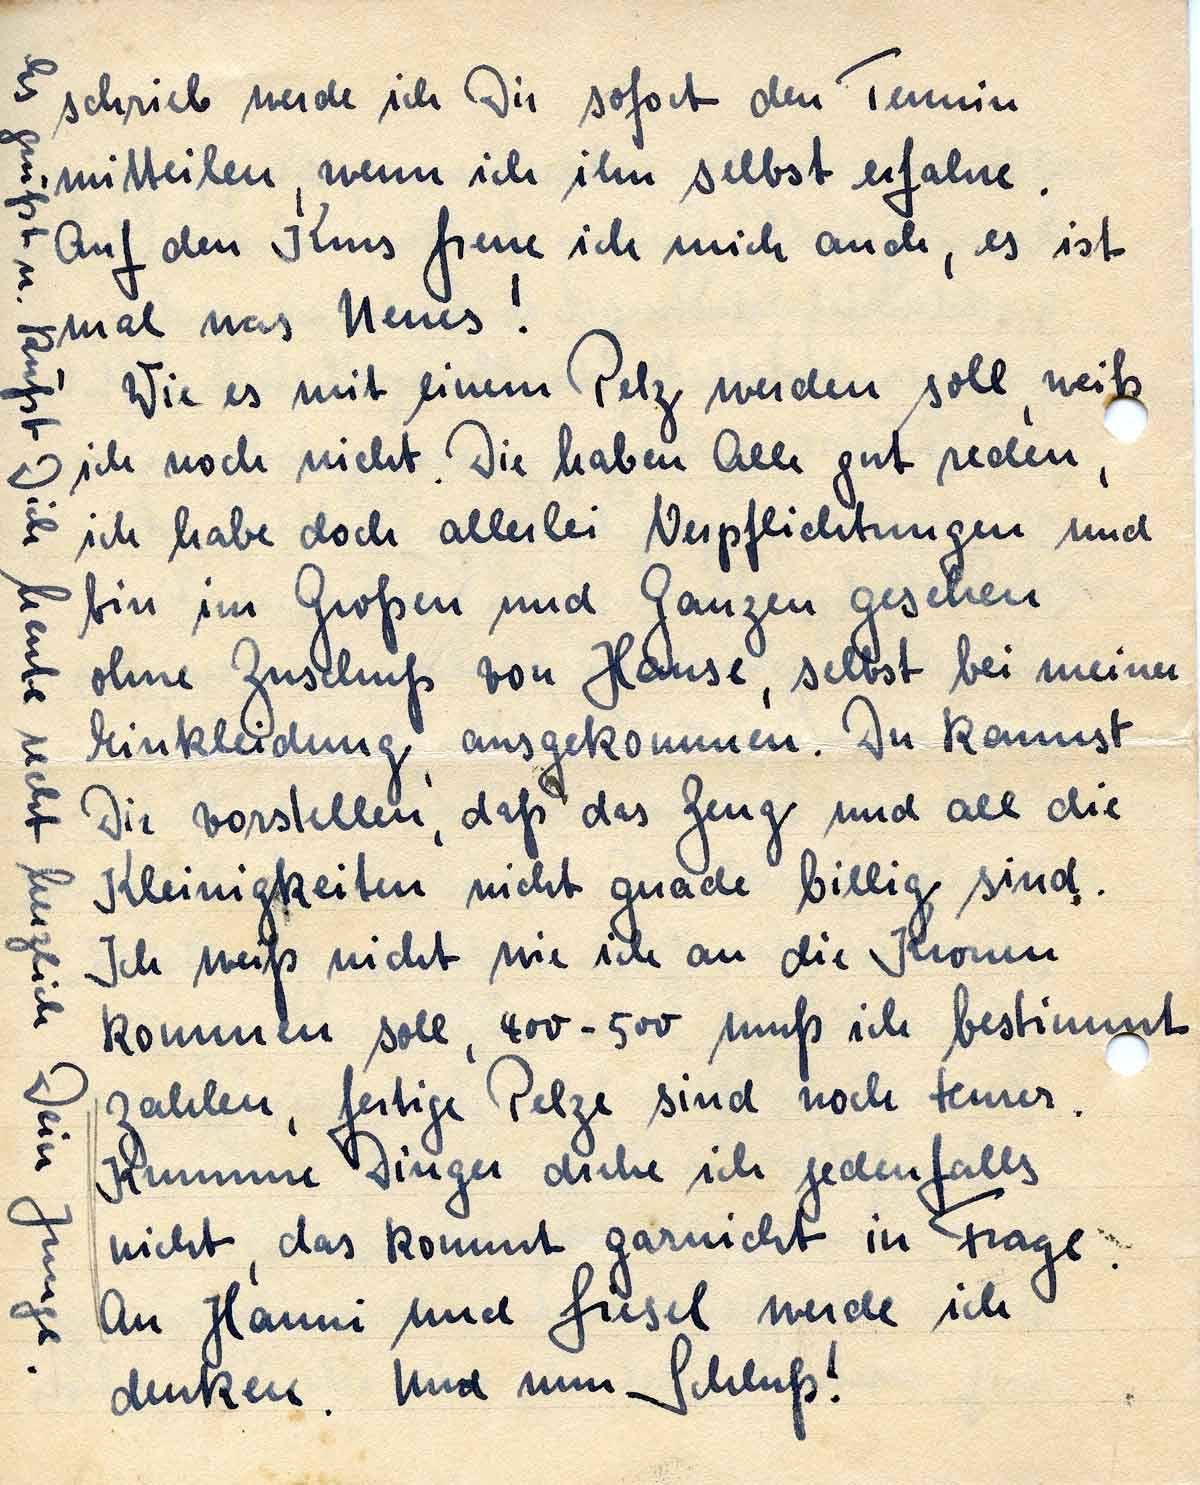 schrieb werde ich Dir sofort den Termin
mitteilen, wenn ich ihn selbst erfahre.
Auf den Kurs freue ich mich auch, es ist
mal was Neues!
Wie es mit einem Pelz werden soll, weiß
ich noch nicht. Die haben Alle gut reden,
ich habe doch allerlei Verpflichtungen und
bin im Großen und Ganzen gesehen
ohne Zuschuß von Hause, selbst bei meiner
Einkleidung, ausgekommen. Du kannst
Dir vorstellen, daß das Zeug und all die
Kleinigkeiten nicht grade billig sind.
Ich weiß nicht wie ich an die Kronen
kommen soll, 400-500 muß ich bestimmt
zahlen, fertige Pelze sind noch teurer.
Krumme Dinger drehe ich jedenfalls
nicht, das kommt garnicht in Frage.
An Hanni und Friesel werde ich
denken. Und nun Schluß!
Es grüßt u. küßt Dich heute recht herzlich Dein Junge.